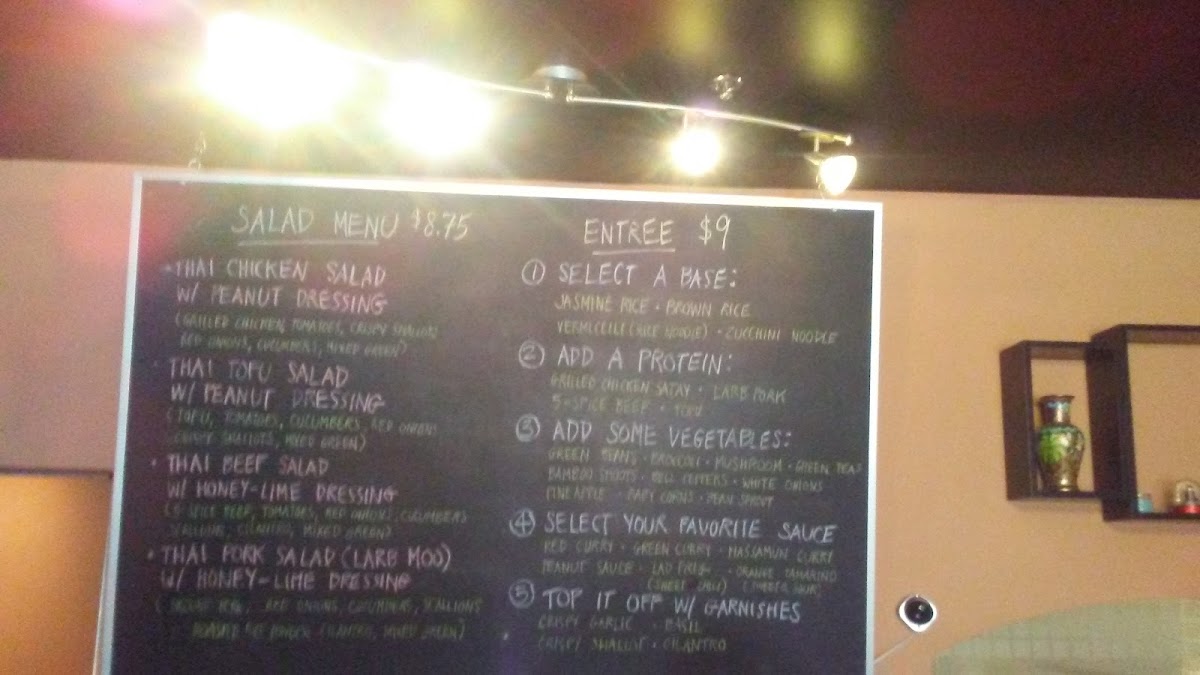 SALAD MENU $8.75
• THAI CHICKEN SALAD
W/ PEANUT DRESSING
(GRILLED CHICKEN, TOMATOES, CRISPY SHALLOTS
RED ONIONS, CUCUMBERS, MIXED GREEN)
• THAI TOFU SALAD
W/ PEANUT DRESSING
(TOFU, TOMATOES, CUCUMBERS, RED ONIONS
CRISPY SHALLOTS, MIXED GREEN)
• THAI BEEF SALAD
W/ HONEY-LIME DRESSING
(5 SPICE BEEF, TOMATOES, RED ONIONS, CUCUMBERS
SCALLIONS, CILANTRO, MIXED GREEN)
• THAI PORK SALAD (LARB MOO)
W/ HONEY-LIME DRESSING
RED ONIONS, CUCUMBERS, SCALLIONS
ROASTED RICE POWDER, CILANTRO, MIXED GREEN)
ENTREE $9
① SELECT A BASE:
JASMINE RICE • BROWN RICE
(RICE NOODLE) • ZUCCHINI NOODLE
② ADD A PROTEIN:
GRILLED CHICKEN SATAY • LARB PORK
5-SPICE BEEF • TOFU
③ ADD SOME VEGETABLES:
GREEN BEANS • BROCCOLI • MUSHROOM • GREEN PEAS
BAMBOO SHOOTS • BELL PEPPERS • WHITE ONIONS
PINEAPPLE • BABY CORNS • BEAN SPROUT
④ SELECT YOUR FAVORITE SAUCE
RED CURRY • GREEN CURRY • MASSAMUN CURRY
PEANUT SAUCE • • ORANGE TAMARIND
⑤ TOP IT OFF W/ GARNISHES
CRISPY GARLIC • BASIL
CRISPY SHALLOT • CILANTRO